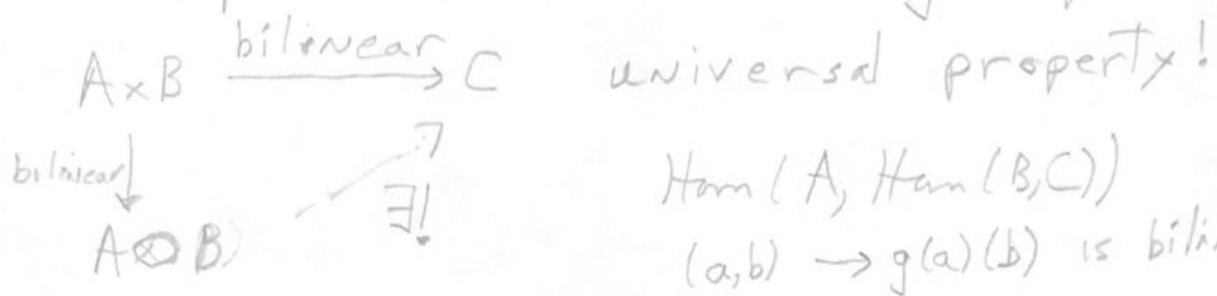 A×B bilinear→ C universal property!
bilinear↓ ∃! Hom(A, Hom(B,C))
A⊗B (a,b) → g(a)(b) is